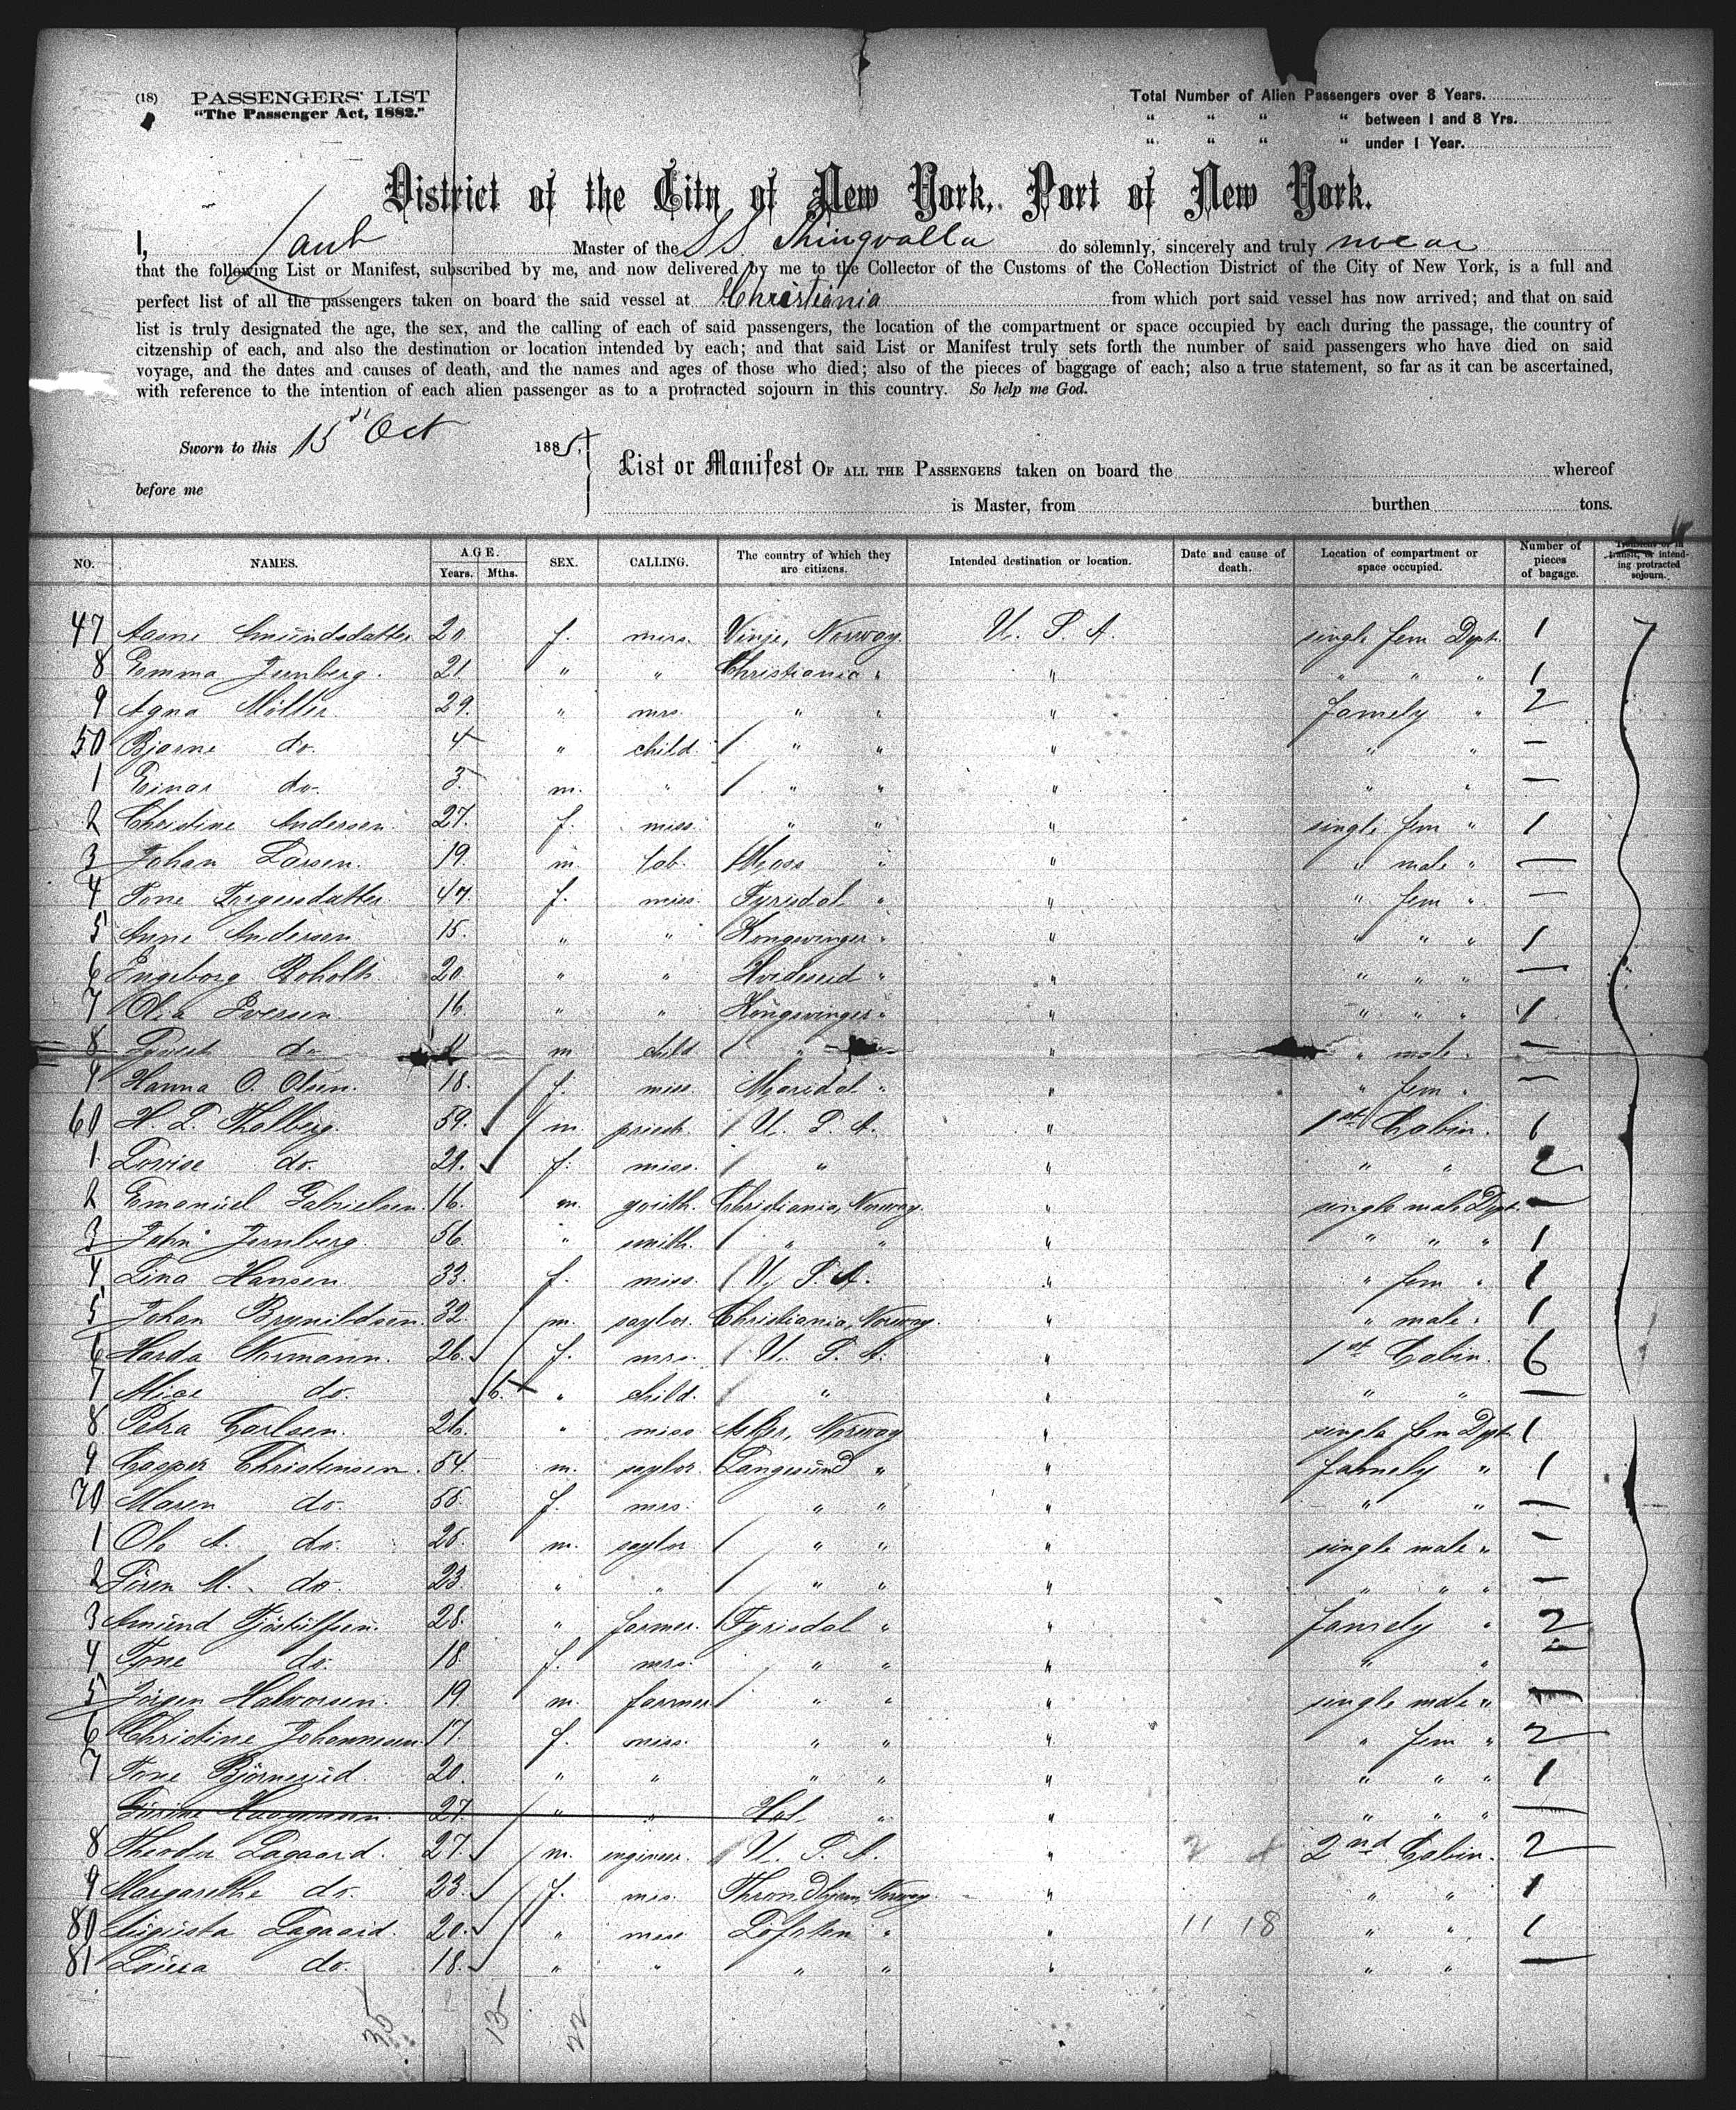 (18) PASSENGERS' LIST
"The Passenger Act, 1882."
Total Number of Alien Passengers over 8 Years.
" " " " between 1 and 8 Yrs.
" " " " under 1 Year.
District of the City of New York, Port of New York.
I, Laub Master of the SS Thingvalla do solemnly, sincerely and truly swear
that the following List or Manifest, subscribed by me, and now delivered by me to the Collector of the Customs of the Collection District of the City of New York, is a full and
perfect list of all the passengers taken on board the said vessel at Christiania from which port said vessel has now arrived; and that on said
list is truly designated the age, the sex, and the calling of each of said passengers, the location of the compartment or space occupied by each during the passage, the country of
citzenship of each, and also the destination or location intended by each; and that said List or Manifest truly sets forth the number of said passengers who have died on said
voyage, and the dates and causes of death, and the names and ages of those who died; also of the pieces of baggage of each; also a true statement, so far as it can be ascertained,
with reference to the intention of each alien passenger as to a protracted sojourn in this country. So help me God.
Sworn to this 15 Oct 1885.
before me
List or Manifest OF ALL THE PASSENGERS taken on board the whereof
is Master, from burthen tons.
NO. NAMES. AGE. Years. Mths. SEX. CALLING. The country of which they are citizens. Intended destination or location. Date and cause of death. Location of compartment or space occupied. Number of pieces of bagage. transit, or intending protracted sojourn.
47 Aasne Amundsdatter 20. f. miss. Vinje, Norway. U. S. A. single fem Dpt. 1
8 Emma Jernberg. 21. " " Christiania " " " " " 1
9 Agna Möller. 29. " mrs. " " " famely " 2
50 Bjarne do. 4 " child " " " " " —
1 Einar do. 3 m. " " " " " " —
2 Christine Andersen. 27. f. miss. " " " single fem " 1
3 Johan Larsen. 19. m. lab. Moss " " " male " —
4 Tone Torgersdatter 47. f. miss. Tyrisdal " " " fem " —
5 Anne Andersen 15. " " Kongsvinger " " " " " 1
6 Engeborg Roholt. 20. " " Hvideseid " " " " " —
7 Olia Iversen 16. " " Kongsvinger " " " " " 1
8 do m child " " " male " —
9 Hanna O. Olsen. 18. f. miss. " " " fem " —
60 H. P. Thalberg. 59. m. priest. U. S. A. " 1st Cabin. 6
1 Lovise do. 29. f. miss. " " " " 2
2 Emanuel Gabrielsen. 16. m. Christiania, Norway. " single male Dpt. —
3 John Jernberg. 56. " smith. " " " " " " 1
4 Lina Hansen 33. f. miss. U. S. A. " " fem " 1
5 Johan Brynildsen. 32. m. saylor. Christiania, Norway. " " male " 1
6 Harda Normann. 26. f. mrs. U. S. A. " 1st Cabin. 6
7 Alice do. 6. " child. " " " " —
8 Petra Carlsen. 26. " miss Asker, Norway " single fem Dpt. 1
9 Casper Christensen. 54. m. saylor. Langesund " " famely " 1
70 Maren do. 55. f. mrs. " " " " " —
1 Ole A. do. 25. m. saylor " " " single male " —
2 Sören M. do. 23. " " " " " " " " —
3 Amund 28. " farmer. Tyrisdal " " famely " 2
4 Tone do. 18. f. mrs. " " " " " —
5 Jörgen Halvorsen. 19. m. farmer " " " single male " 1
6 Christine Johannesen. 17. f. miss. " " " " fem " 2
7 Tone Björnerud. 20. " " " " " " " " 1
Haagensen. 27. " " Hol. " " " " " —
8 Theodor Aagaard. 27. m. engineer. U. S. A. " 2nd Cabin. 2
9 Margarethe do. 23. f. mis. Throndhjem, Norway. " " " 1
80 Augusta Aagaard. 20. " miss Lofoten " " 11 18 " " 1
81 Laura do. 18. " " " " " " " —
35 13 22